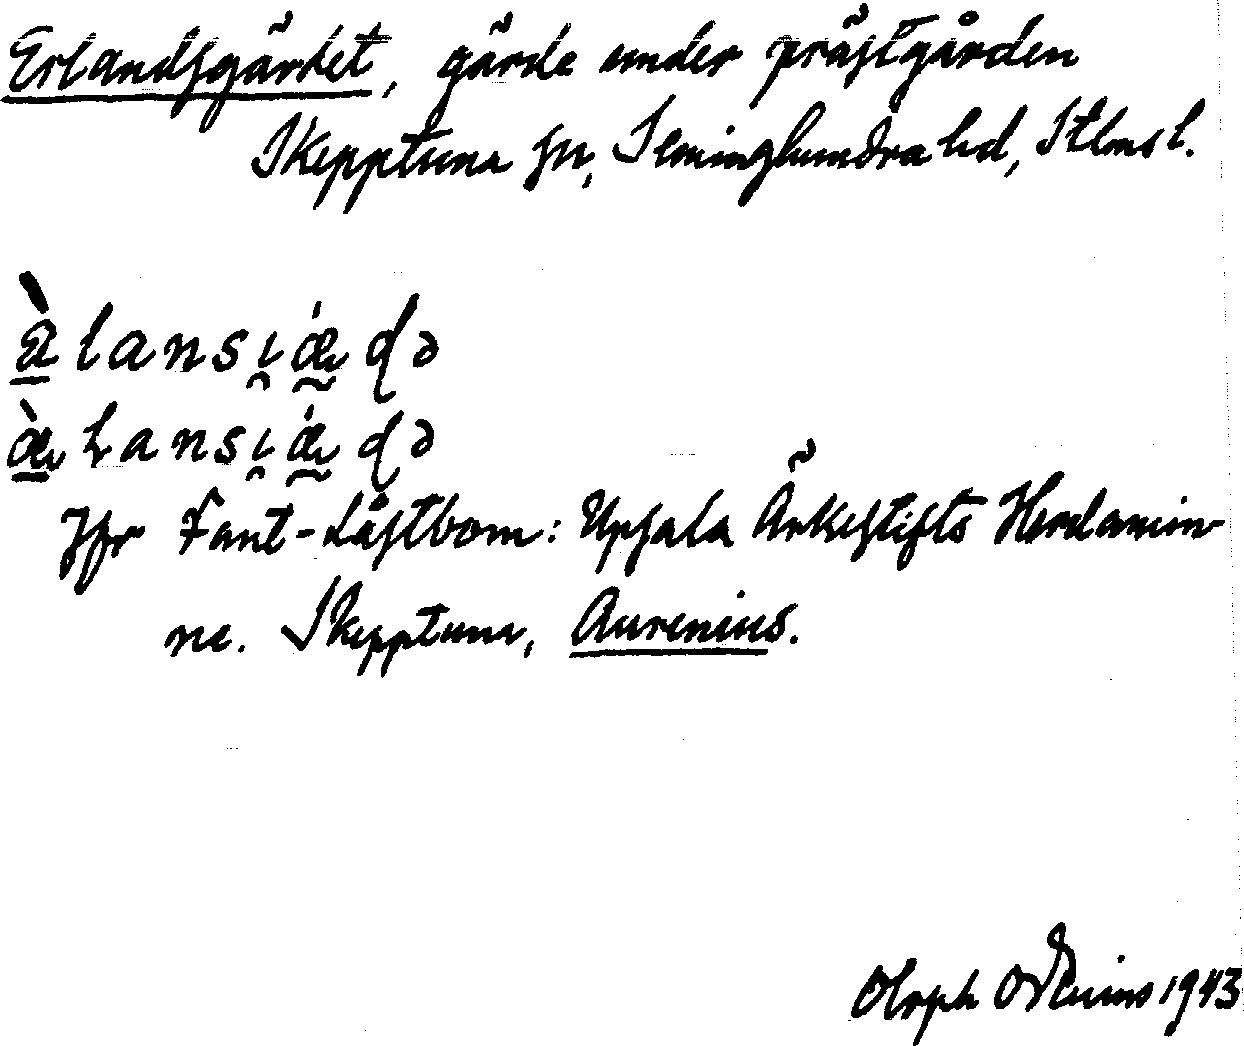 Erlandsgärdet, gärde under prästgården
Skepptuna sn, Seminghundra hd, Sthms l.
æ̀lansi̯ǽɖə
æ̀ɽansi̯ǽɖə
Jfr Fant-Låstbom: Upsala Ärkestifts Herdamin-
ne. Skepptuna, Aurenius.
Oloph Odenius 1943